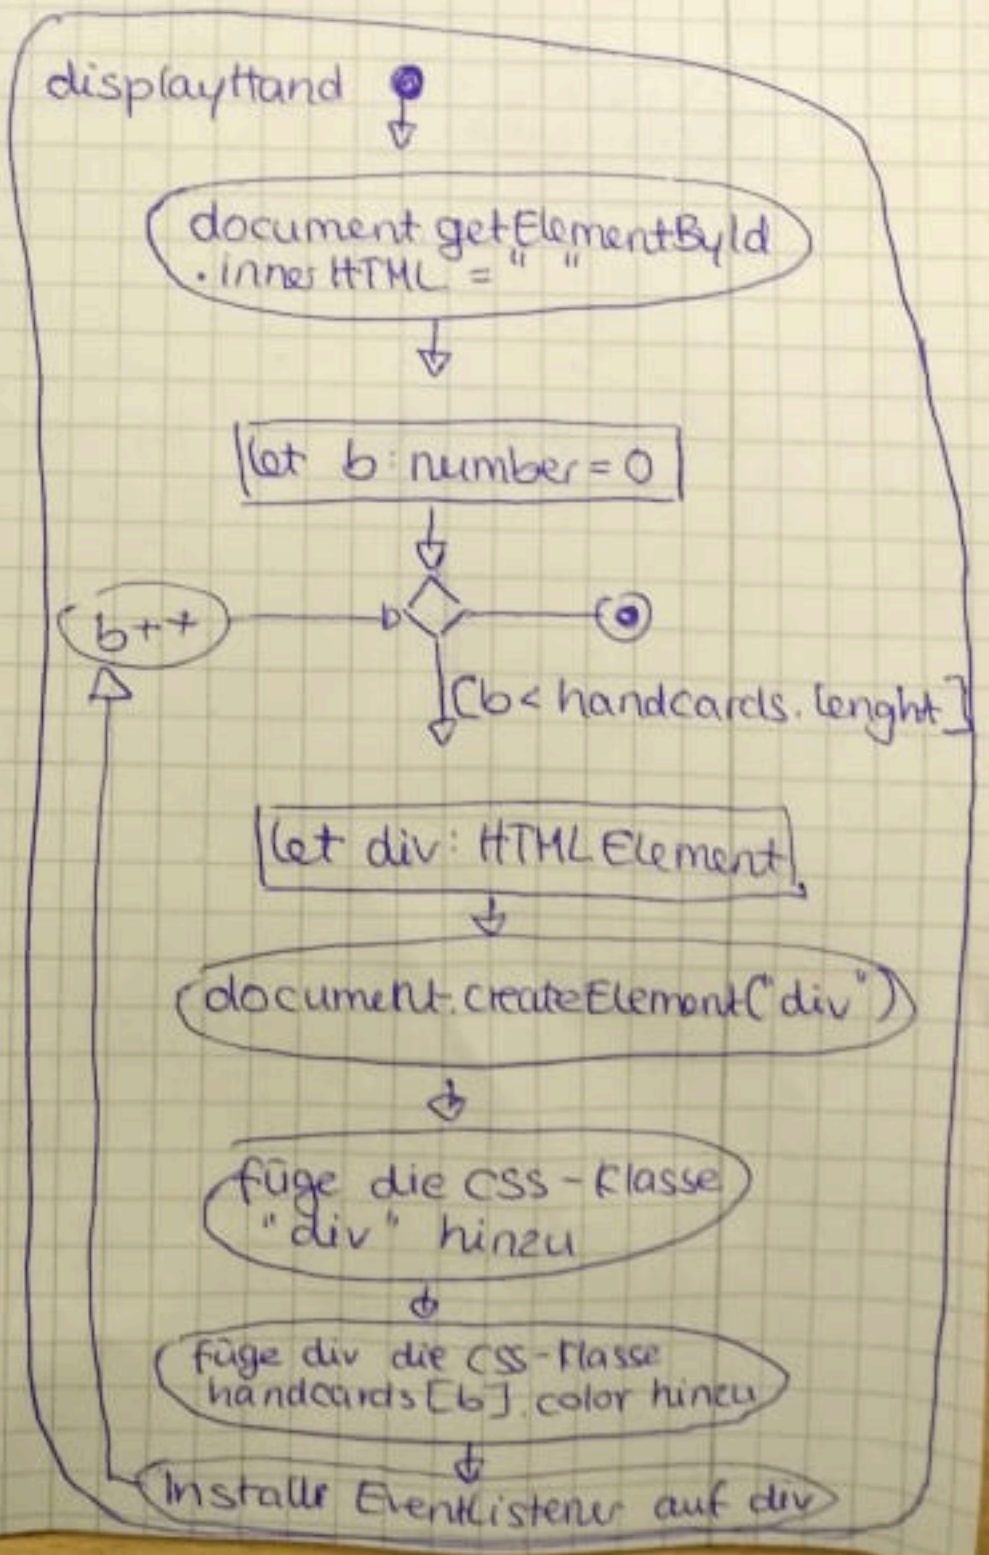 displayHand
document getElementById
.innerHTML = " "
let b: number = 0
b++
[b < handcards.lenght]
let div: HTML Element
document.createElement("div")
füge die CSS-Klasse
"div" hinzu
füge div die CSS-Klasse
handcards[b].color hinzu
Installr EventListener auf div